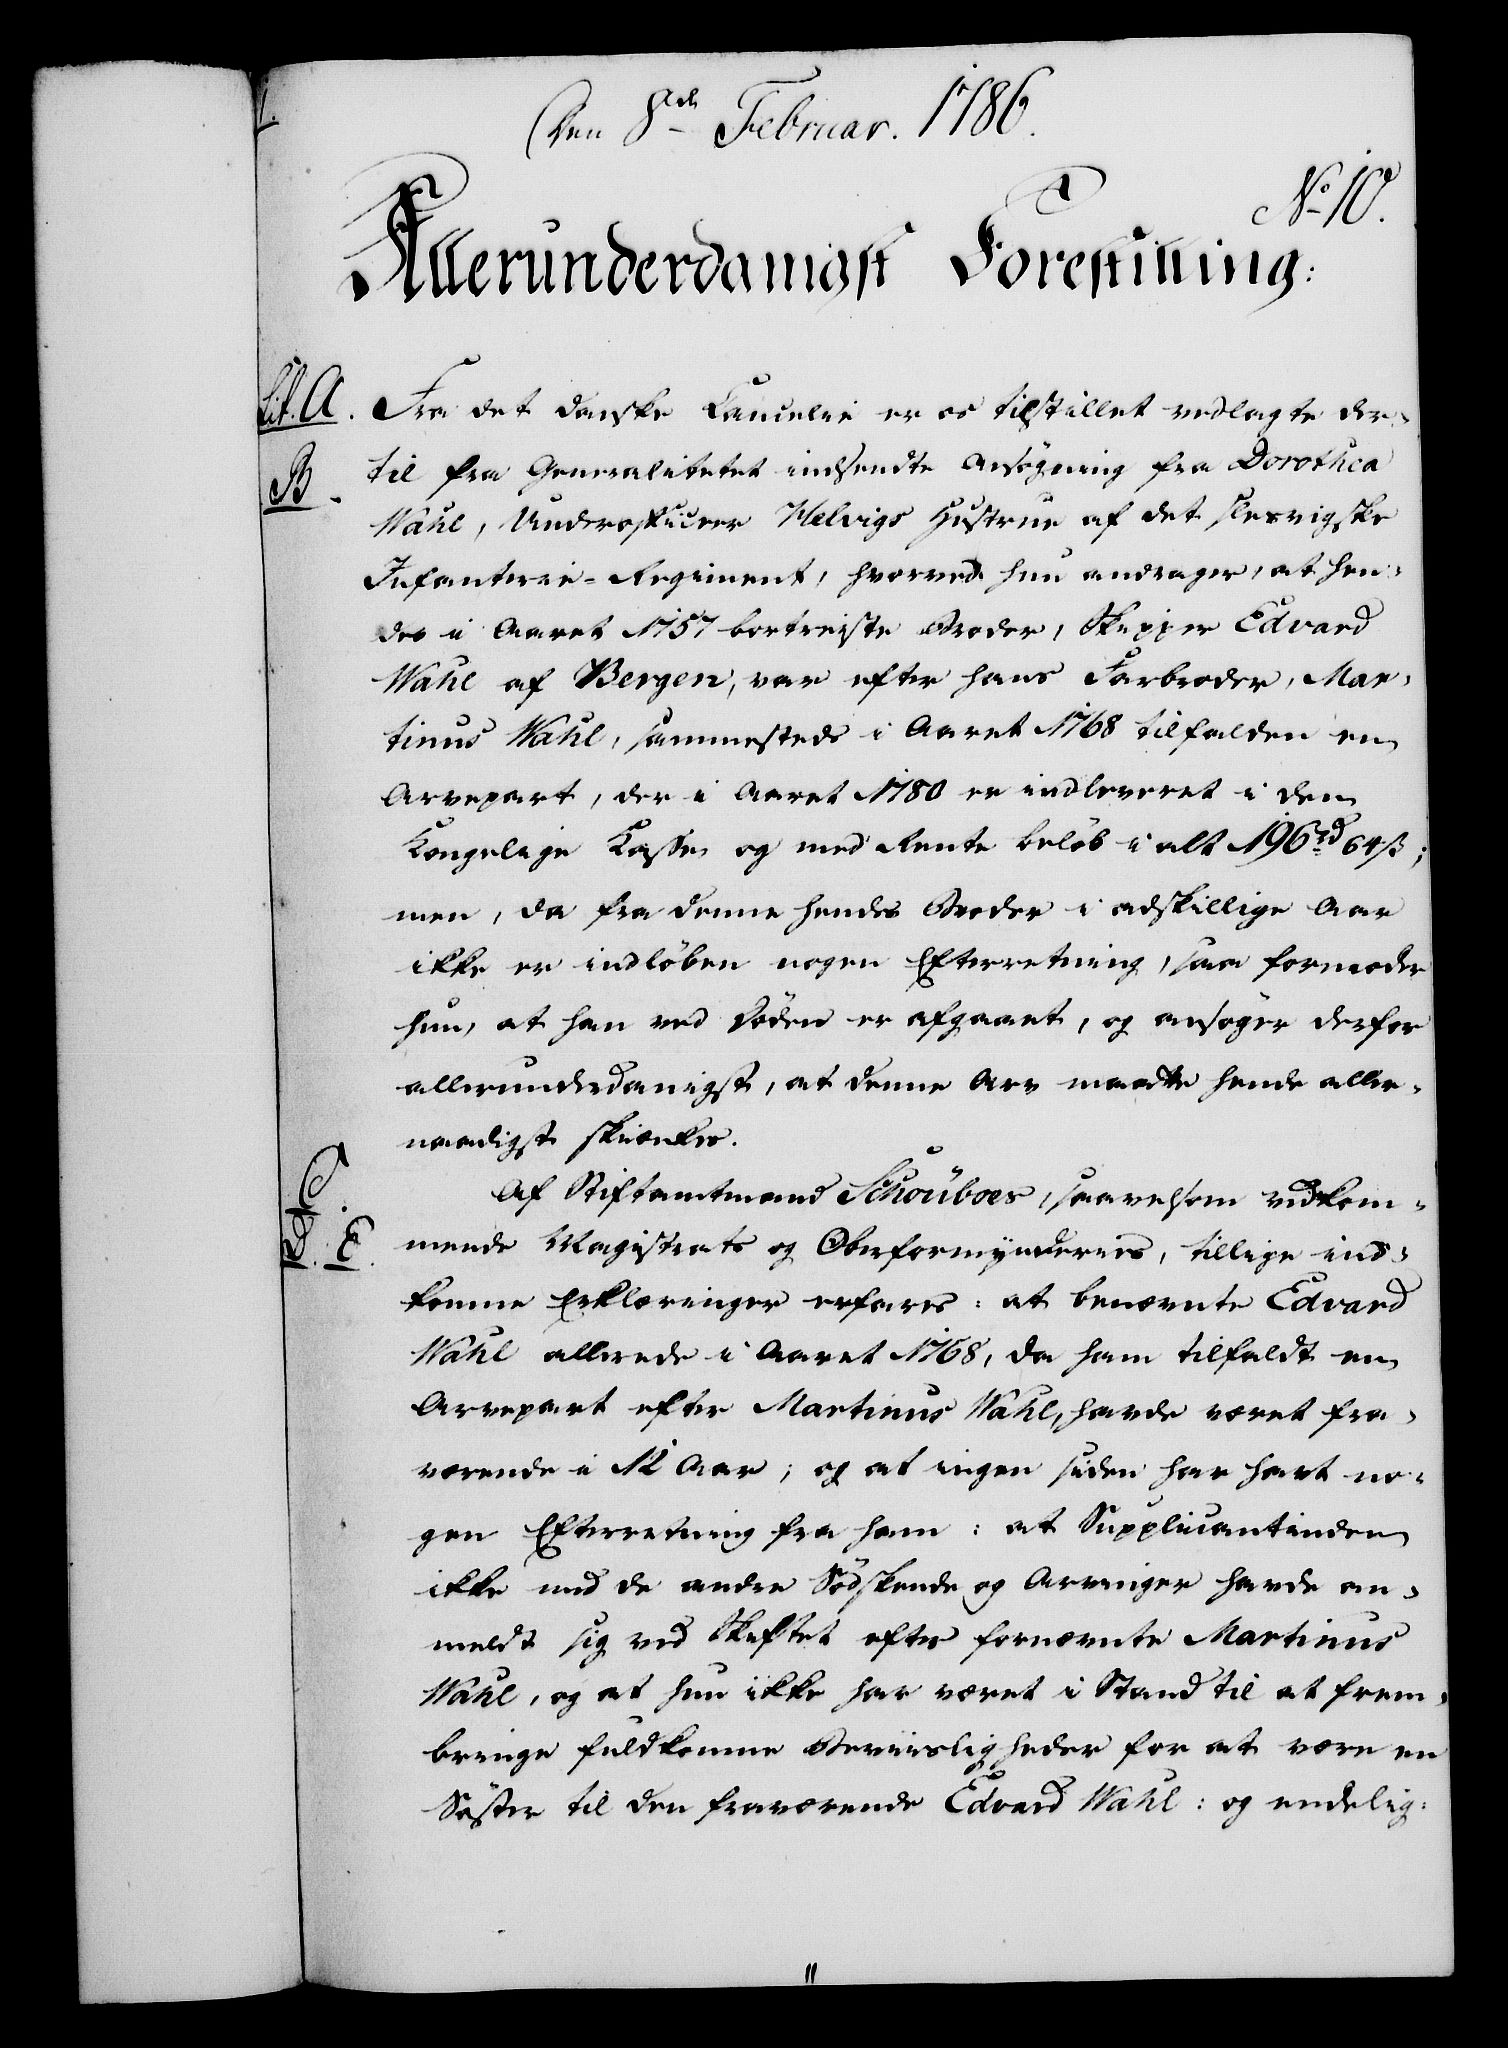 Den 8de Februar. 1786.
No 10.
Allerunderdanigst Forestilling:
Lit. A. Fra det danske Cancelie er os tilstillet vedlagte der-
B. til fra Generalitetet indsendte Ansøgning fra Dorothea
Wahl, Underofficeer Helvigs Hustrue af det slesvigske
Infanterie-Regiment, hvorved hun andrager, at hen-
des i Aaret 1757 bortreiste Broder, Skipper Edvard
Wahl af Bergen, var efter hans Farbroder, Mar-
tinus Wahl, sammesteds i Aaret 1768 tilfalden en
Arvepart, der i Aaret 1780 er indleveret i den
Kongelige Kasse og med Rente beløb i alt 196 rd 64 ß;
men, da fra denne hendes Broder i adskillige Aar
ikke er indløben nogen Efterretning, saa formoder
hun, at han ved Døden er afgaaet, og ansøger derfor
allerunderdanigst, at denne Arv maatte hende aller-
naadigst skienkes.
Af Stiftamtmand Schouboes, saavelsom vedkom-
E. mende Magistrats og Overformynderies, tillige ind-
komne Erklæringer erfares: at benævnte Edvard
Wahl allerede i Aaret 1768, da ham tilfaldt en
Arvepart efter Martinus Wahl, havde været fra-
værende i 12 Aar; og at ingen siden har havt no-
gen Efterretning fra ham: at Supplicantinden
ikke med de andre Södskende og Arvinger havde an-
meldt sig ved Skiftet efter fornævnte Martinus
Wahl, og at hun ikke har været i Stand til at frem-
bringe fuldkomne Beviisligheder for at være en
Søster til den fraværende Edvard Wahl: og endelig: